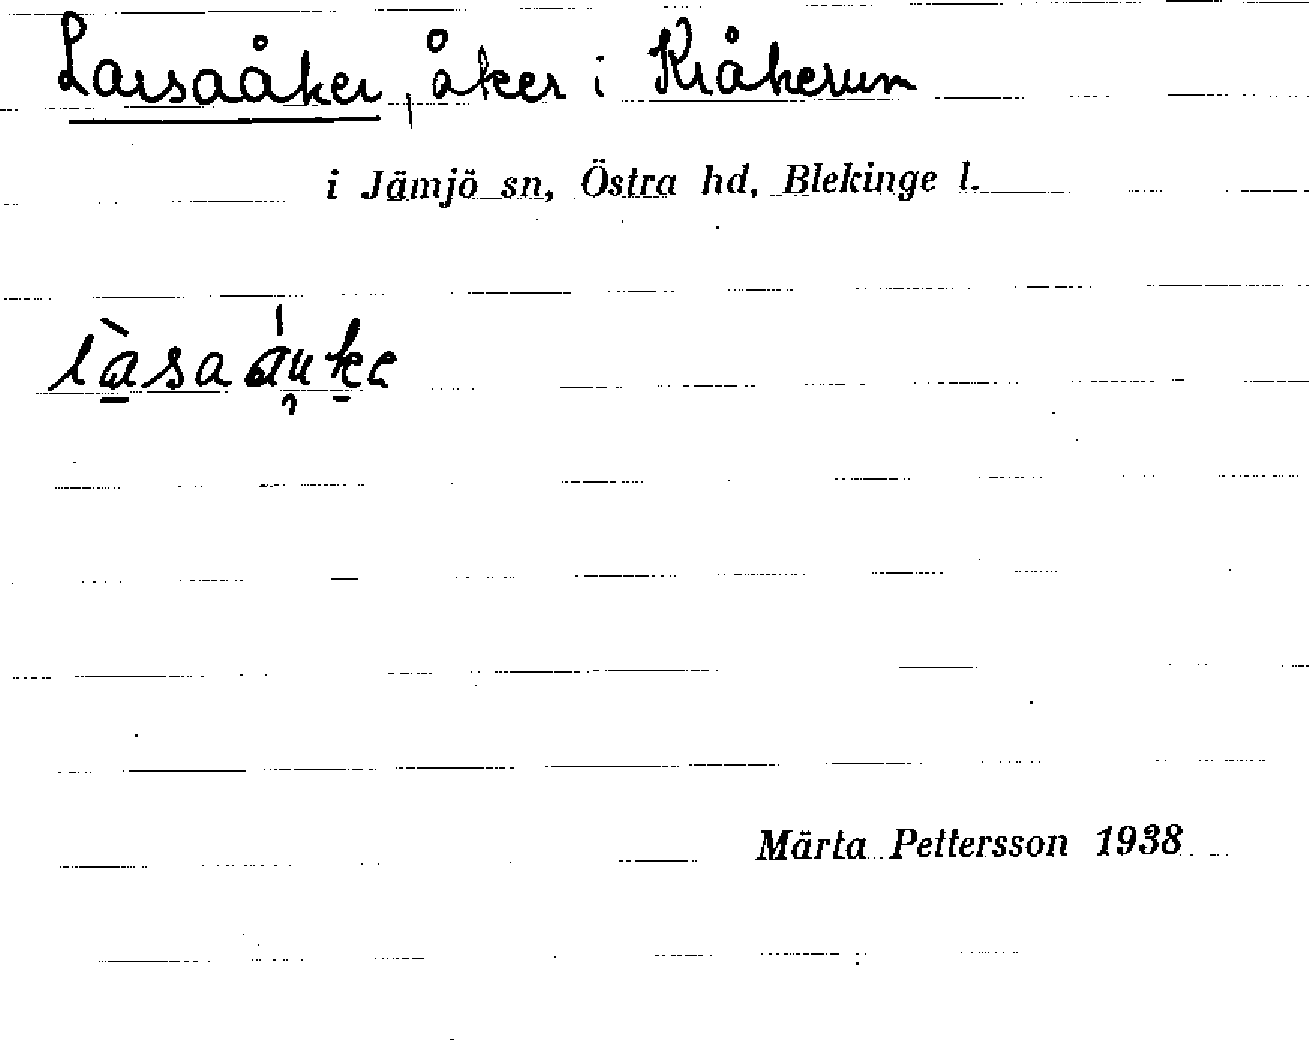 Larsaåker, åker i Kråkerum
i Jämjö sn, Östra hd, Blekinge l.
làsaáu̯ke
Märta Pettersson 1938